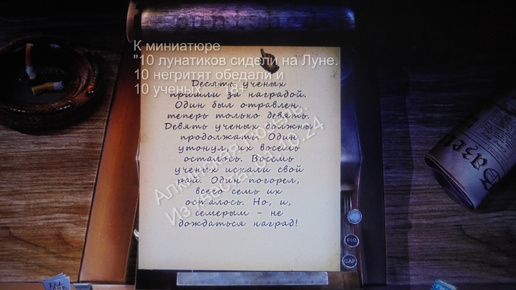 К миниатюре
"10 лунатиков сидели на Луне.
10 негритят обедали и
10 ученых
Десять ученых
пришли за наградой.
Один был отравлен,
теперь только девять.
Девять ученых должны
продолжать. Один
утонул, их восемь
осталось. Восемь
ученых искали свой
рай. Один погорел,
всего семь их
осталось. Но, и,
семерым - не
дождаться наград!